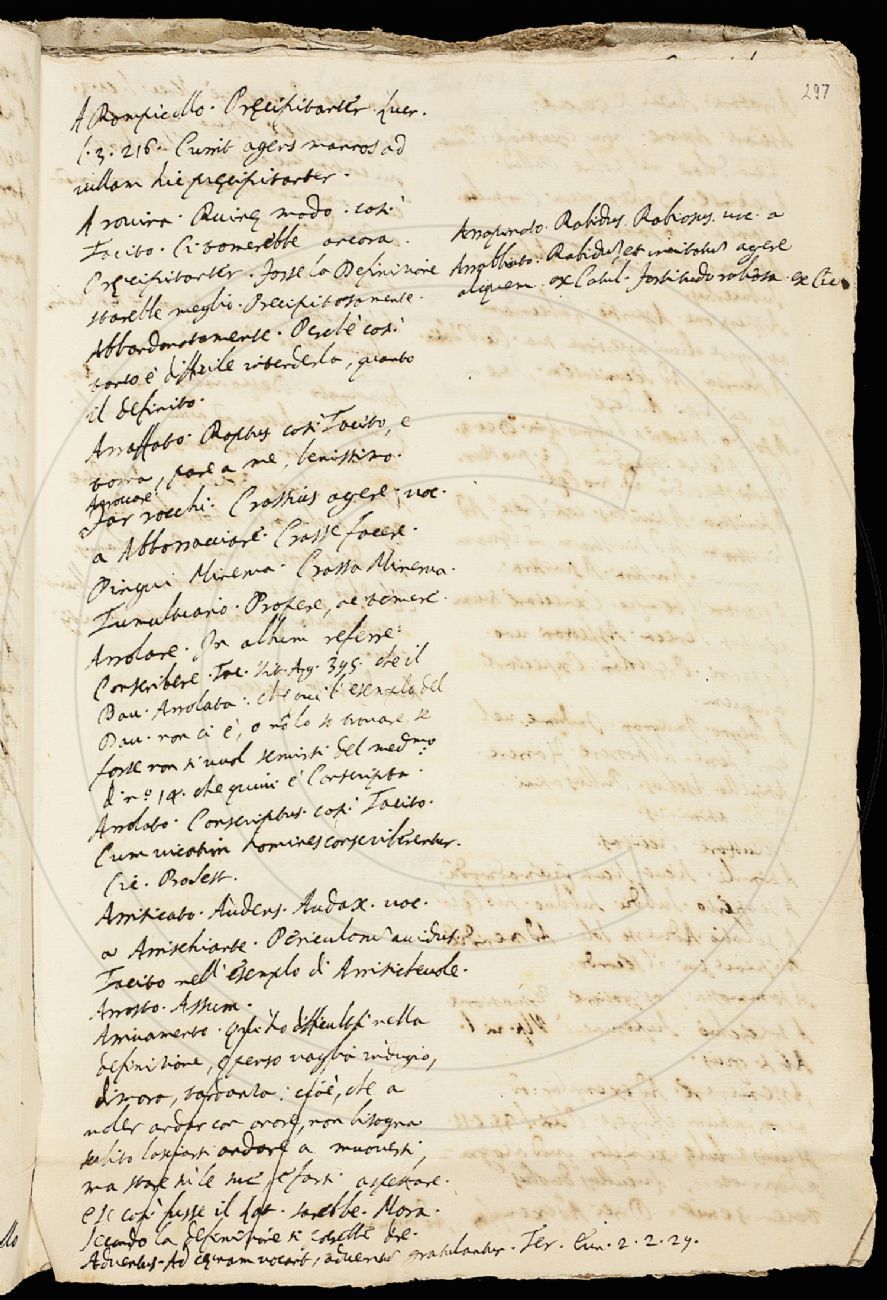 297
A Rompicollo. Precipitanter. Lucr.
l. 3. 216. Currit agens mannos ad
villam hic precipitanter.
A rovina. Ruinę modo. così
Tacito. Ci tornerebbe ancora.
Pręcipitanter. Forse la Definizione
starebbe meglio. Precipitosamente.
Abbandonatamente. Perchè così
tanto è difficile intenderla, quanto
il definito.
Arraffato. Raptus così Tacito, e
torna, pare a me, benissimo.
Arrocare
Far rocchi. Crassius agere. voc.
a Abborracciare. Crasse facere.
Pingui Minerva. Crassa Minerva.
Tumultuario. Propere, ac temere.
Arrolare. In album referre.
Conscribere. Tac. Vit. Ag. 395. che il
Dav. Arrolata. che qui l'esempio del
Dav. non ci è, o nō lo so trovare, se
forse non si vuol servirsi del medmo
d. no. 14. che quivi è Conscripta.
Arrolato. Conscriptus. così Tacito.
Cum vicatim homines conscriberentur.
Cic. Pro Sest.
Arrisicato. Audens. Audax. voc.
a Arrischiante. Periculoru avidus.
Tacito nell'esempio di Arrisichevole.
Arrosto. Assum.
Arrivamento. Qui ho difficultà nella
definizione, e penso vaglia indugio,
dimora, tardanza: cioè, che a
voler andar con onore, non bisogna
subito lasciarsi andare a muoversi,
ma stare si le sue, e farsi aspettare.
e se così fusse il lat. sarebbe. Mora.
Secondo la definizione si potrebbe dire.
Adventus. Ad cęnam vocant, adventū gratulantur. Ter. Eun. 2. 2. 29.
Rabidus. Rabiosus. voc. a
Arrabbiato. Rabidus et incitatus agere
aliquem. ex Catul. Fortitudo rabiosa. ex Cic.